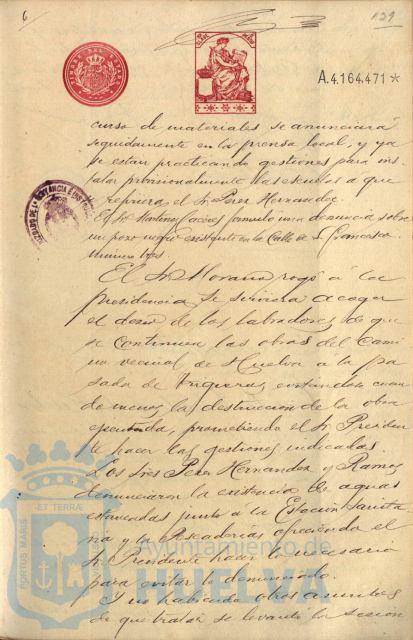 6
129
A.4.164.471*
curso de materiales se anunciará
seguidamente en la prensa local, y ya
se estan practicando gestiones para ins-
talar provisionalmente las escuelas a que
se refiriera el Sr Perez Hernandez.
El Sr Martinez formuló una denuncia sobre
un pozo negro existente en la Calle de S. Francisco
número tres
El Sr Morano rogó á la
presidencia se sirviera acoger
el deseo de los labradores de que
se continuen las obras del Cami-
no vecinal de Huelva a la pa-
sada de Trigueros, evitandose cuan-
do menos la destrucción de la obra
ejecutada, prometiendo el Sr Presiden-
te hacer las gestiones indicadas.
Los Sres Perez Hernandez y Ramos
denunciaron la existencia de aguas
estancadas junto a la Estación Sanita-
ria y la Pescaderia, ofreciendo el
Sr Presidente hacer lo necesario
para evitar lo denunciado.
Y no habiendo otros asuntos
de que tratar se levantó la sesión
PORTUS MARIS
ET TERRAE
Ayuntamiento de
HUELVA